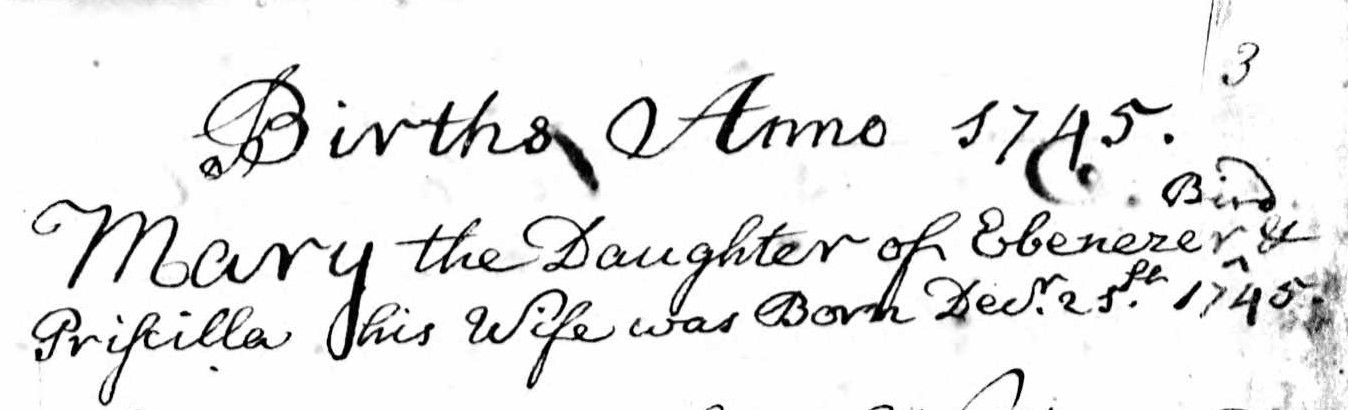 3
Births Anno 1745.
Bird
Mary the Daughter of Ebenezer ^ &
Priſcilla his Wife was Born Decr. 25th. 1745.